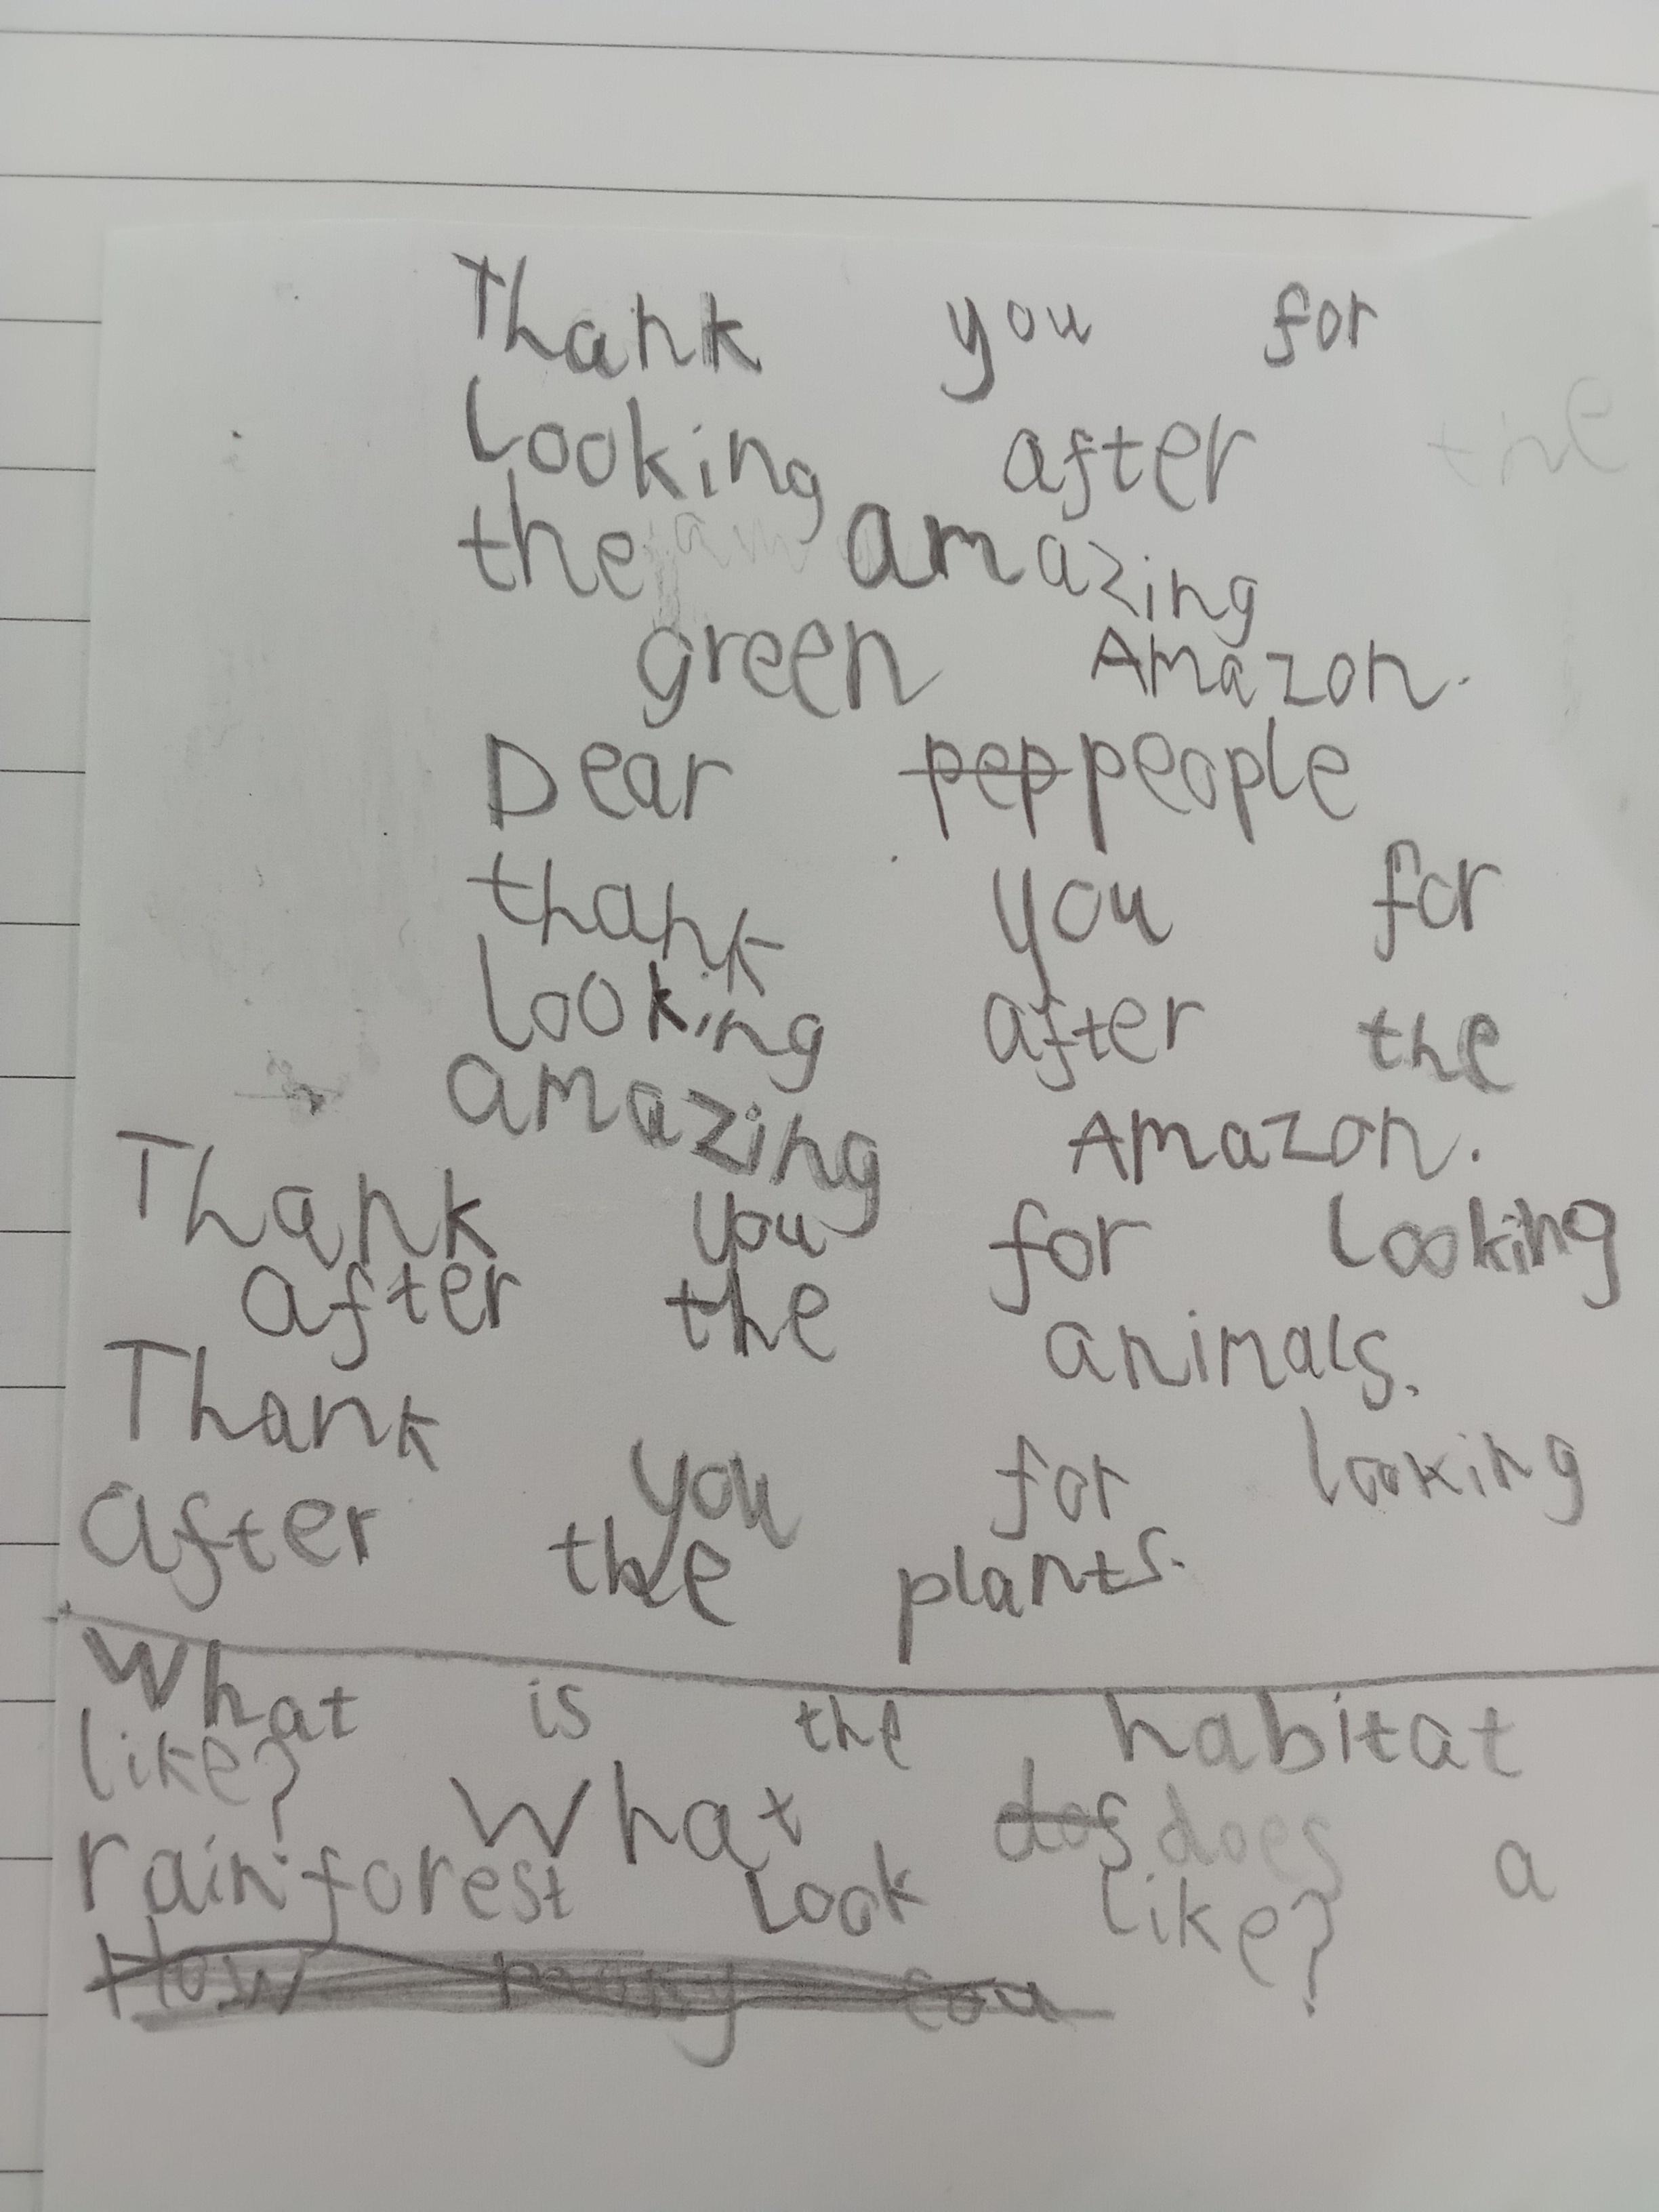 Thank you for
looking after
the amazing
green Amazon.
Dear pep people
thank you for
looking after the
amazing Amazon.
Thank you for looking
after the animals.
Thank you for looking
after the plants.
What is the habitat
like? What dos does a
rainforest look like?
How many cou